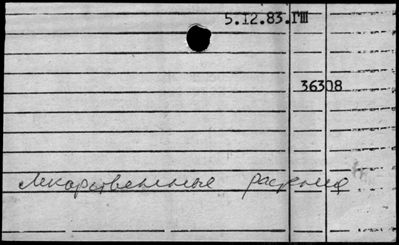 5.12.83.ГШ
36308
Лекарственные растения